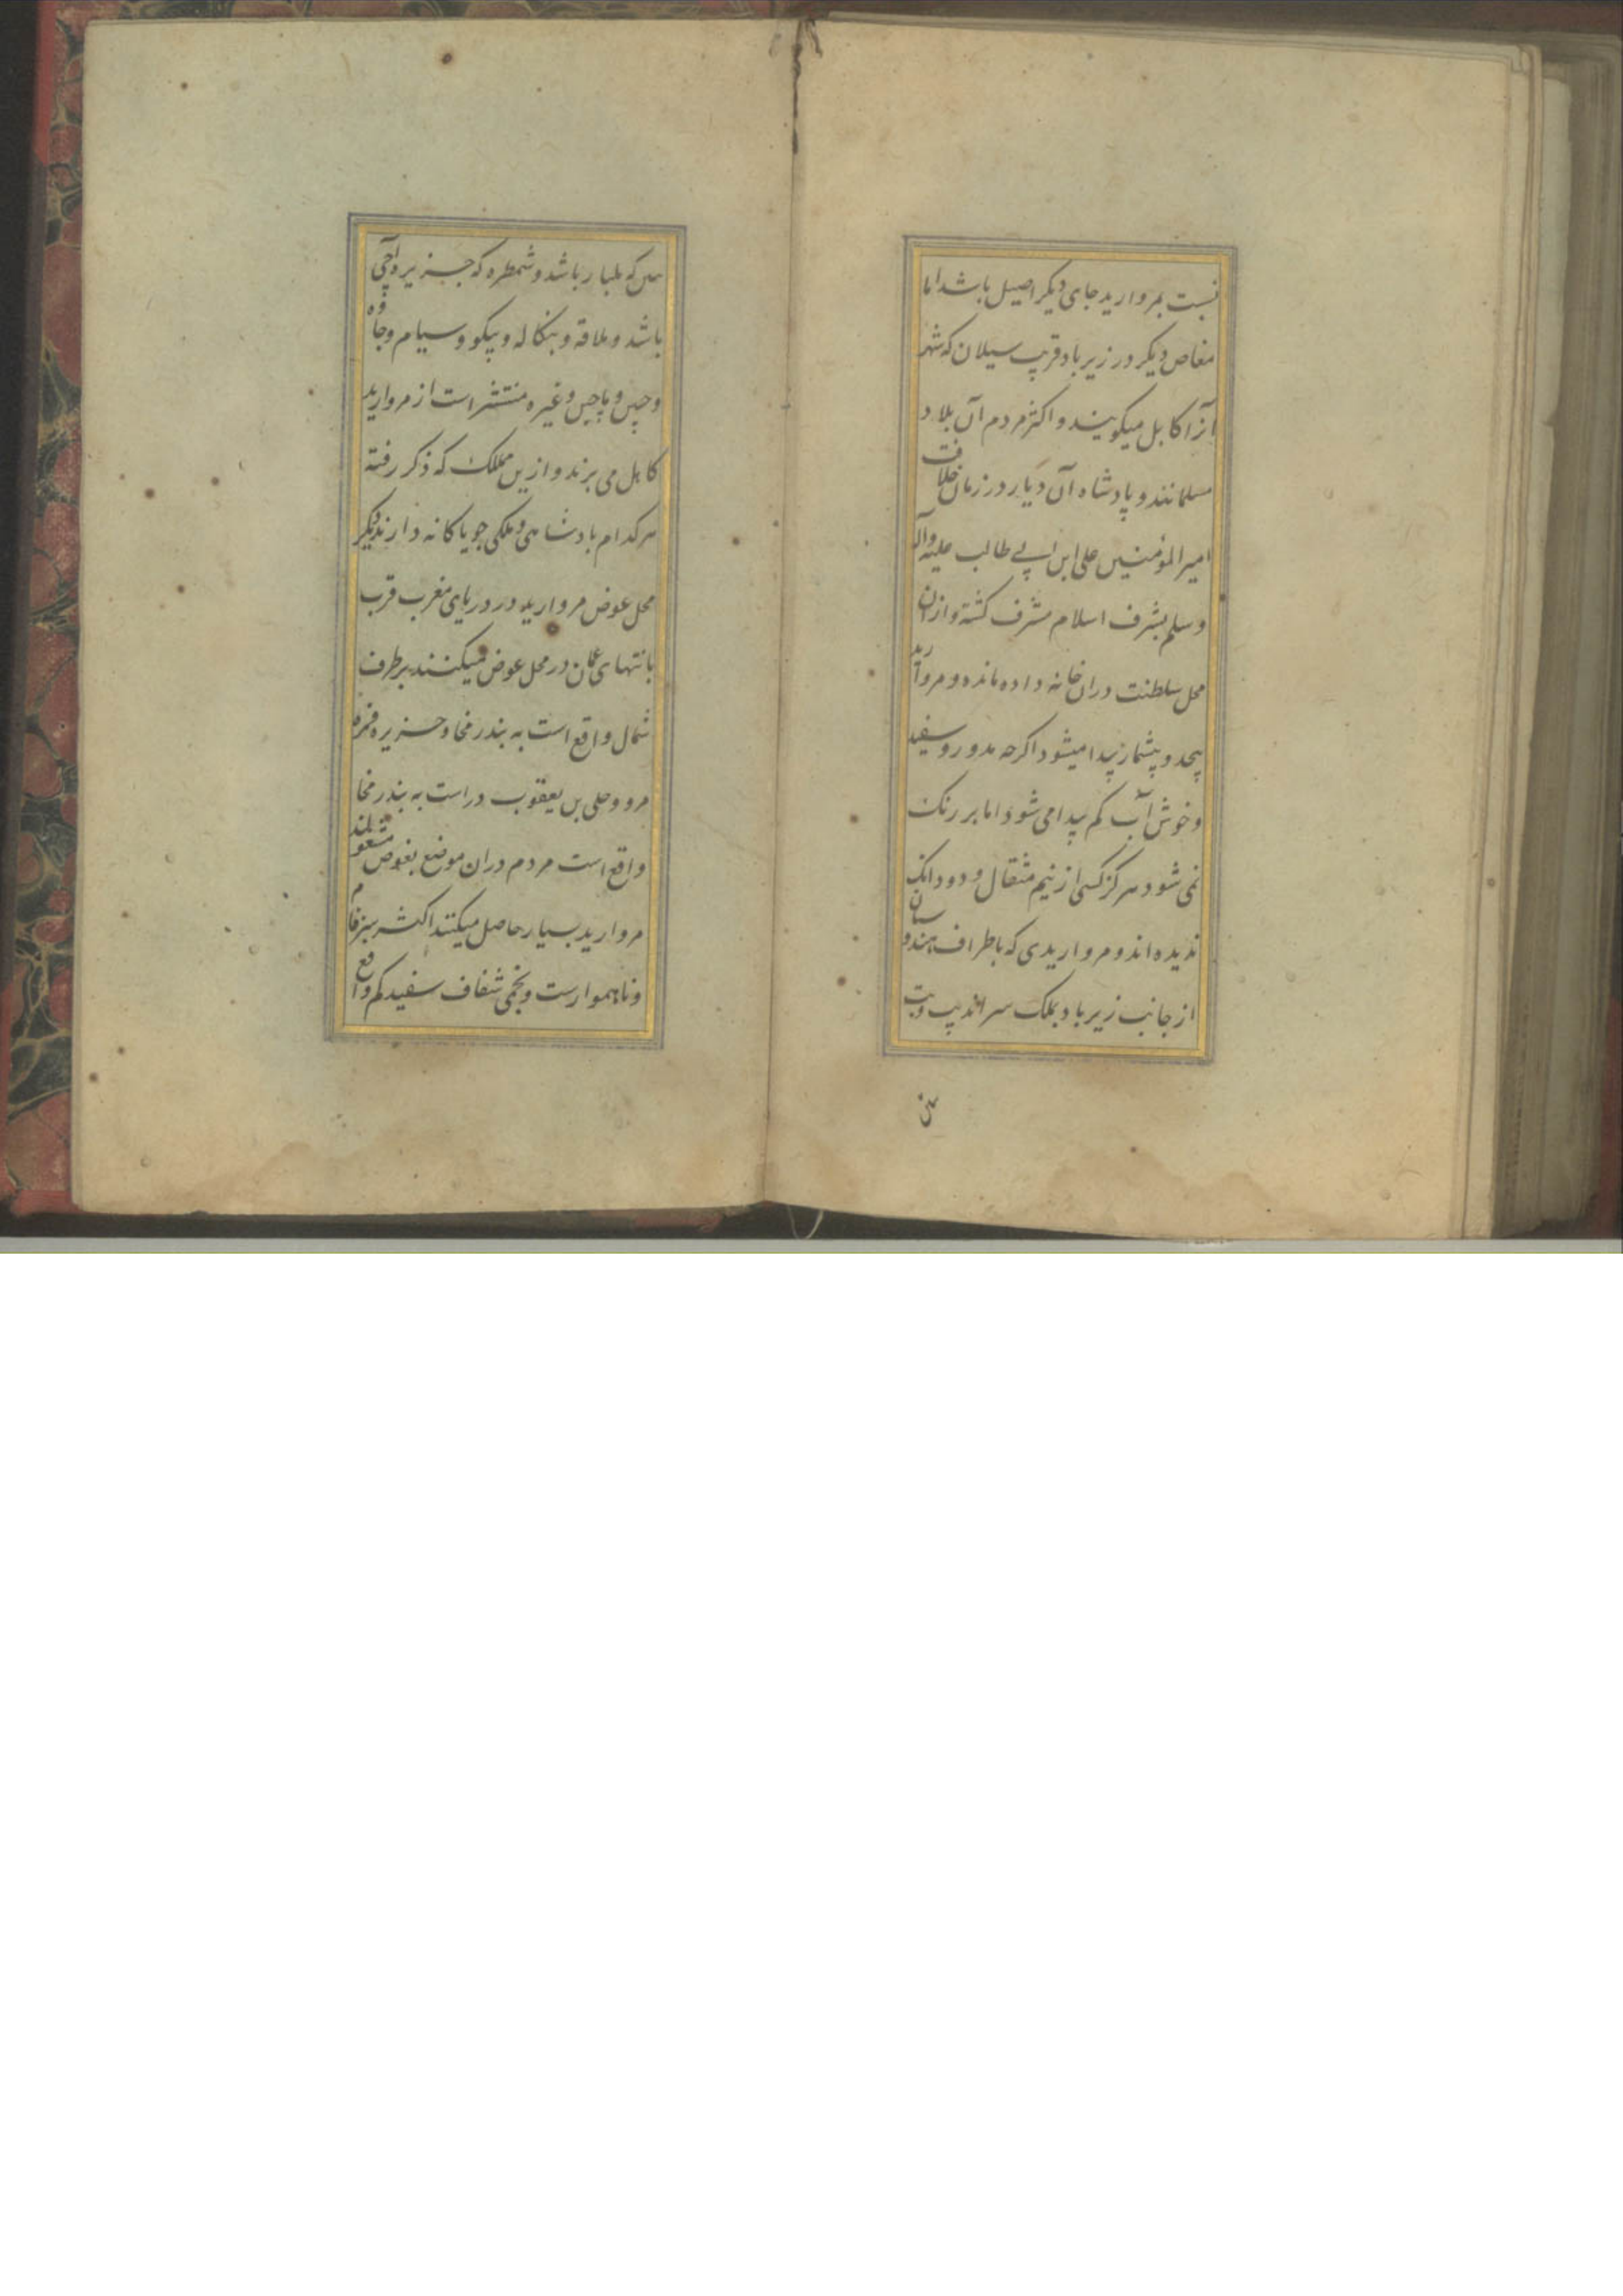 نسبت بمروارید جای دیکر اصیل باشد اما
مغاص دیکر در زیرباد قریب سیلان که شهر
آنرا کابل میکویند و اکثر مردم آن بلاد
مسلمانند و پادشاه آن دیار در زمان خلافت
امیرالمؤمنین علی ابن ابی طالب علیه وآله
وسلم بشرف اسلام مشرف کشته و ازان
محل سلطنت دران خانه داده مانده و مروارید
بیحد و بیشمار پیدا میشود اکرچه مدور و سفید
و خوش آب کم پیدا می شود اما بر رنک
نمی شود هرکز کسی از نیم مثقال و دو دانک
ندیده اند و مرواریدی که باطراف هندوستان
از جانب زیرباد بملک سراندیپ
که ملیبار باشد و شمطره که جزیره آچی
باشد و ملاقه و بنکاله و پیکو و سیام و جاوه
و چین و ماچین و غیره منتشر است از مروارید
کابل می برند و ازین مملک که ذکر رفته
هرکدام بادشاهی و ملکی جویاکانه دارند دیکر
محل عوض مروارید در دریای مغرب قرب
بانتهای عمان در محل عوض میکنند بر طرف
شمال واقع است به بندر مخا و جزیره
بن یعقوب در است به بندر مخا
واقع است مردم دران موضع بغوص مشغولند
مروارید بسیار حاصل میکنند اکثر سبزفام
و ناهموارست و نجمی شفاف سفید کم واقع